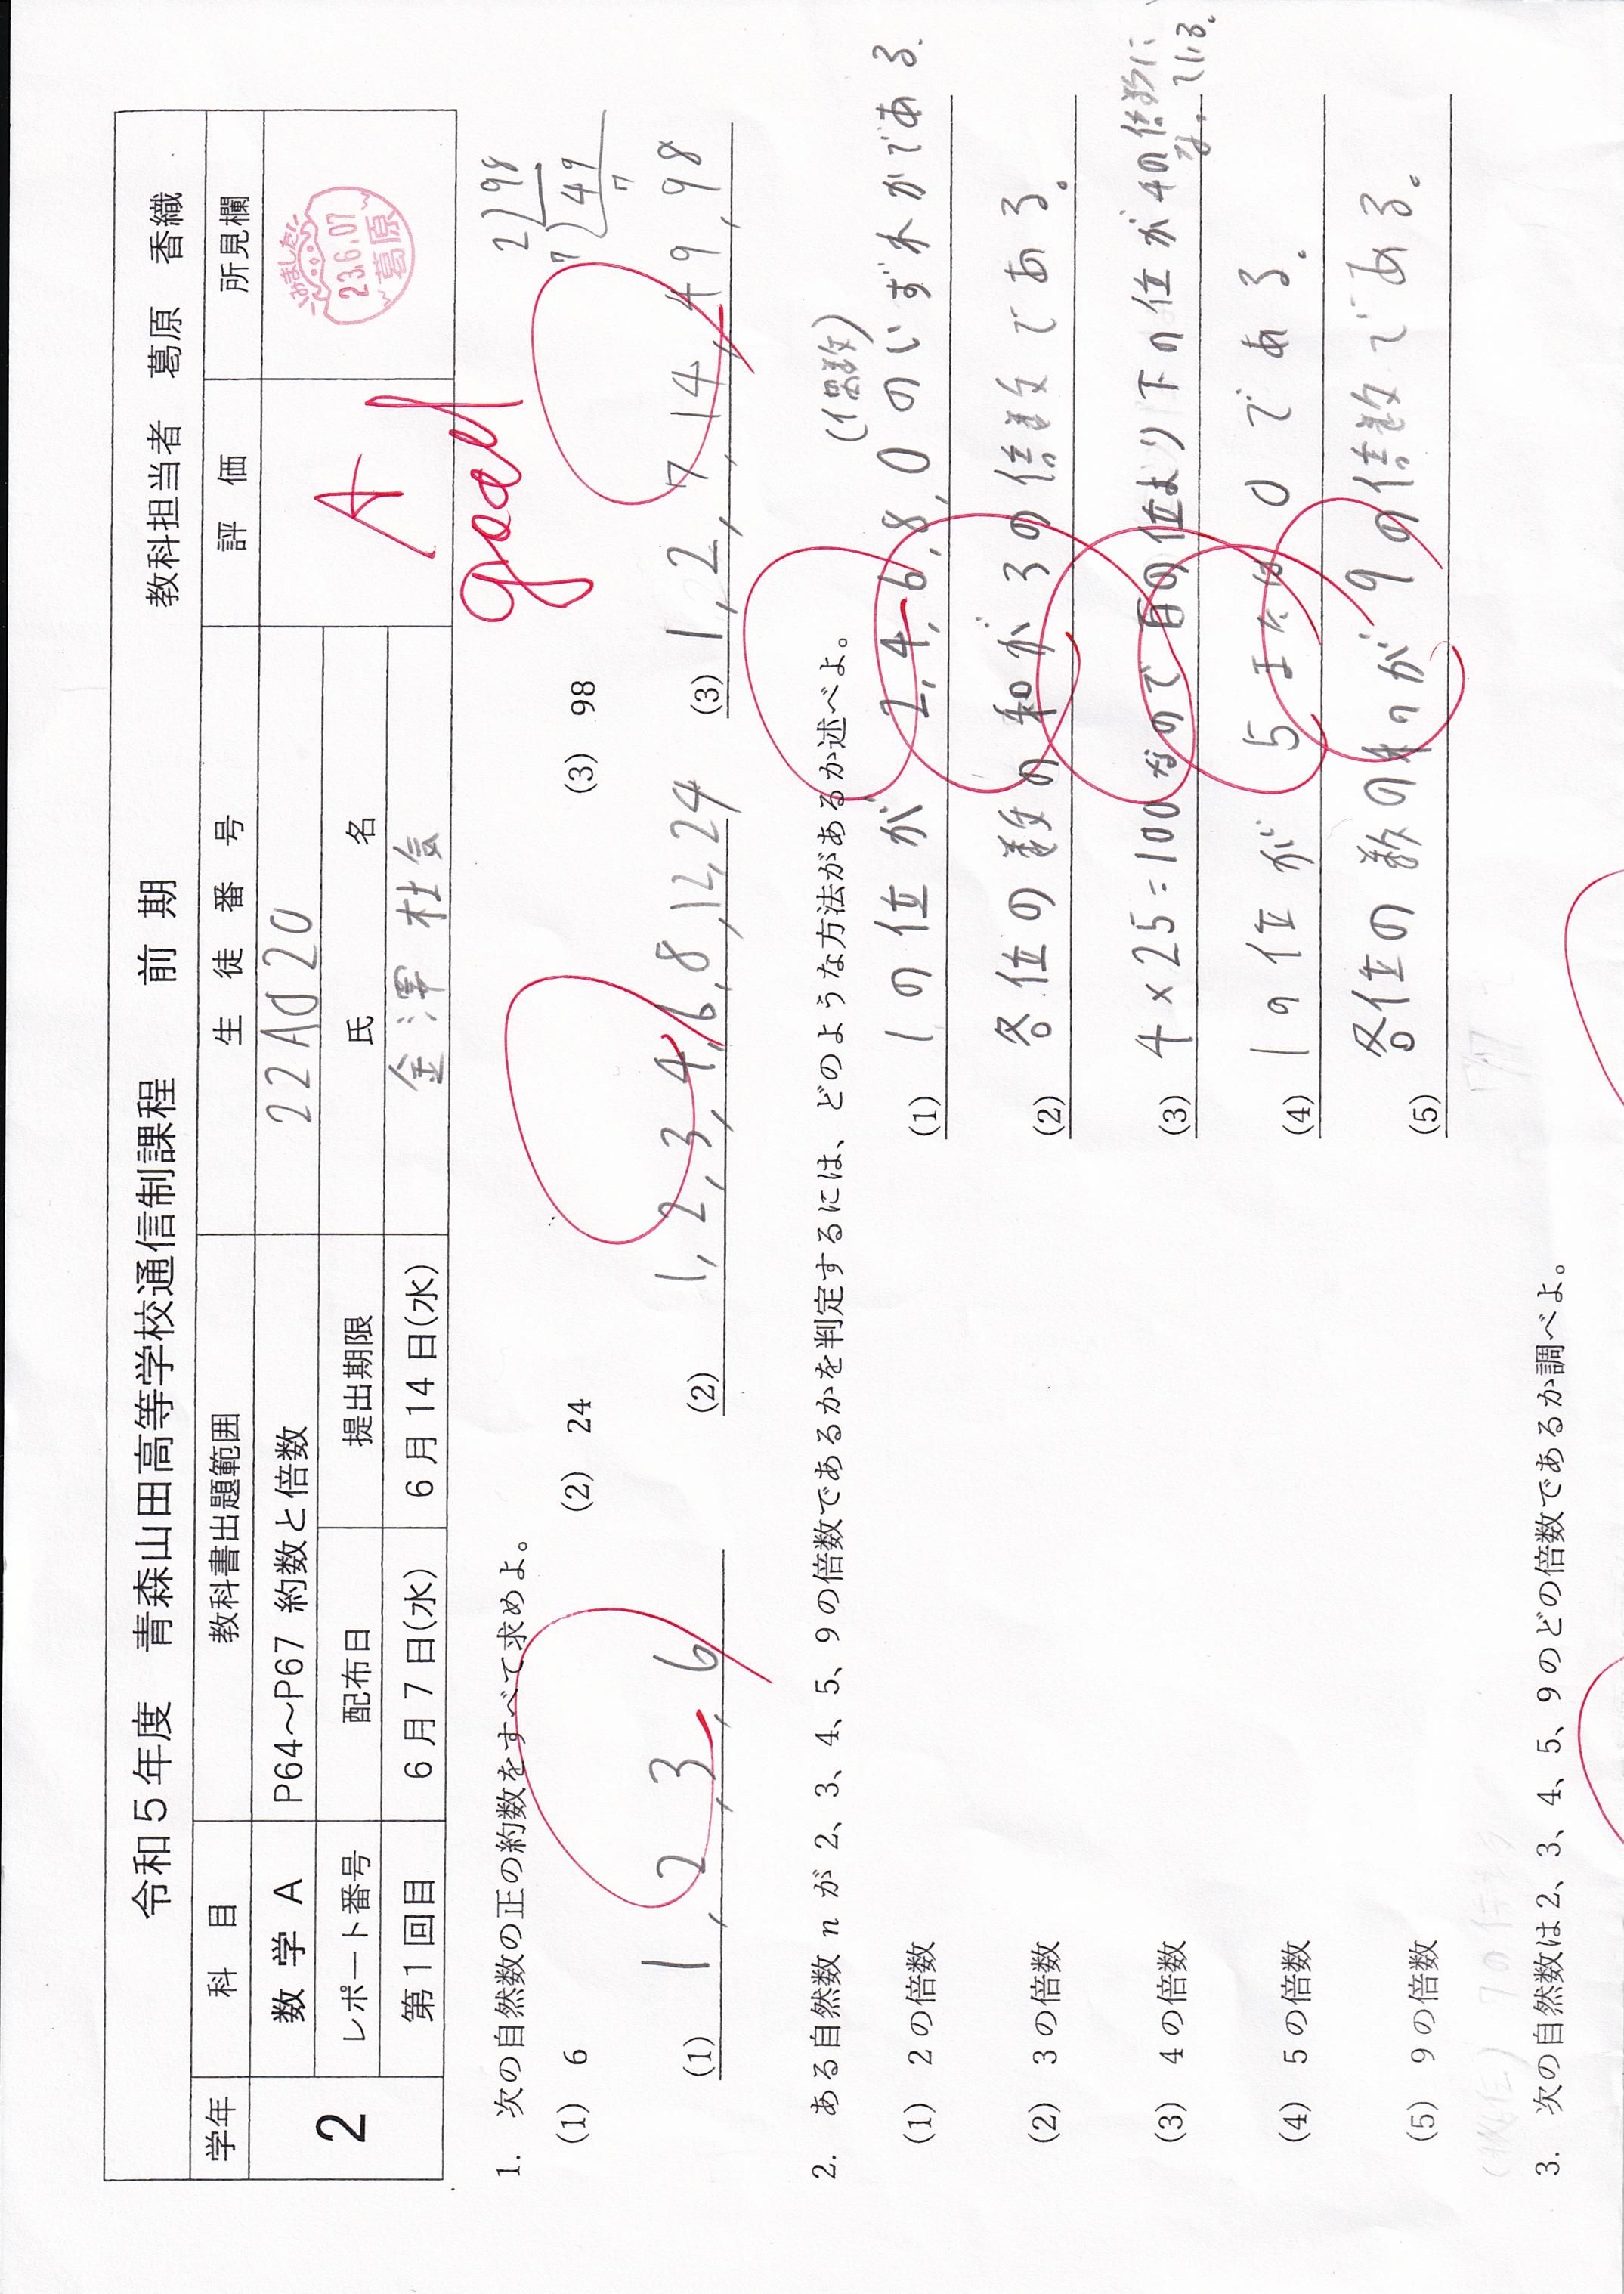 令和5年度 青森山田高等学校通信制課程 前期 教科担当者 葛原 香織
学年 科目 教科書出題範囲 生徒番号 評価 所見欄
2 数学A P64～P67 約数と倍数 22Ad20 A みました 23.6.07 葛原
レポート番号 配布日 提出期限 氏名
第1回目 6月7日(水) 6月14日(水) 金澤杜気
good
1. 次の自然数の正の約数をすべて求めよ。
(1) 6 (2) 24 (3) 98
2)98
7)49
7
(1) 1, 2, 3, 6 (2) 1, 2, 3, 4, 6, 8, 12, 24 (3) 1, 2, 7, 14, 49, 98
2. ある自然数 n が 2、3、4、5、9 の倍数であるかを判定するには、どのような方法があるか述べよ。
(偶数)
(1) 2の倍数 (1) 1の位が 2,4,6,8,0のいずれかである.
(2) 3の倍数 (2) 各位の数の和が3の倍数である。
(3) 4の倍数 (3) 4×25=100なので百の位より下の位が4の倍数に
なっている.
(4) 5の倍数 (4) 1の位が5または0である.
(5) 9の倍数 (5) 各位の数の和が9の倍数である。
7の倍数
3. 次の自然数は 2、3、4、5、9 のどの倍数であるか調べよ。